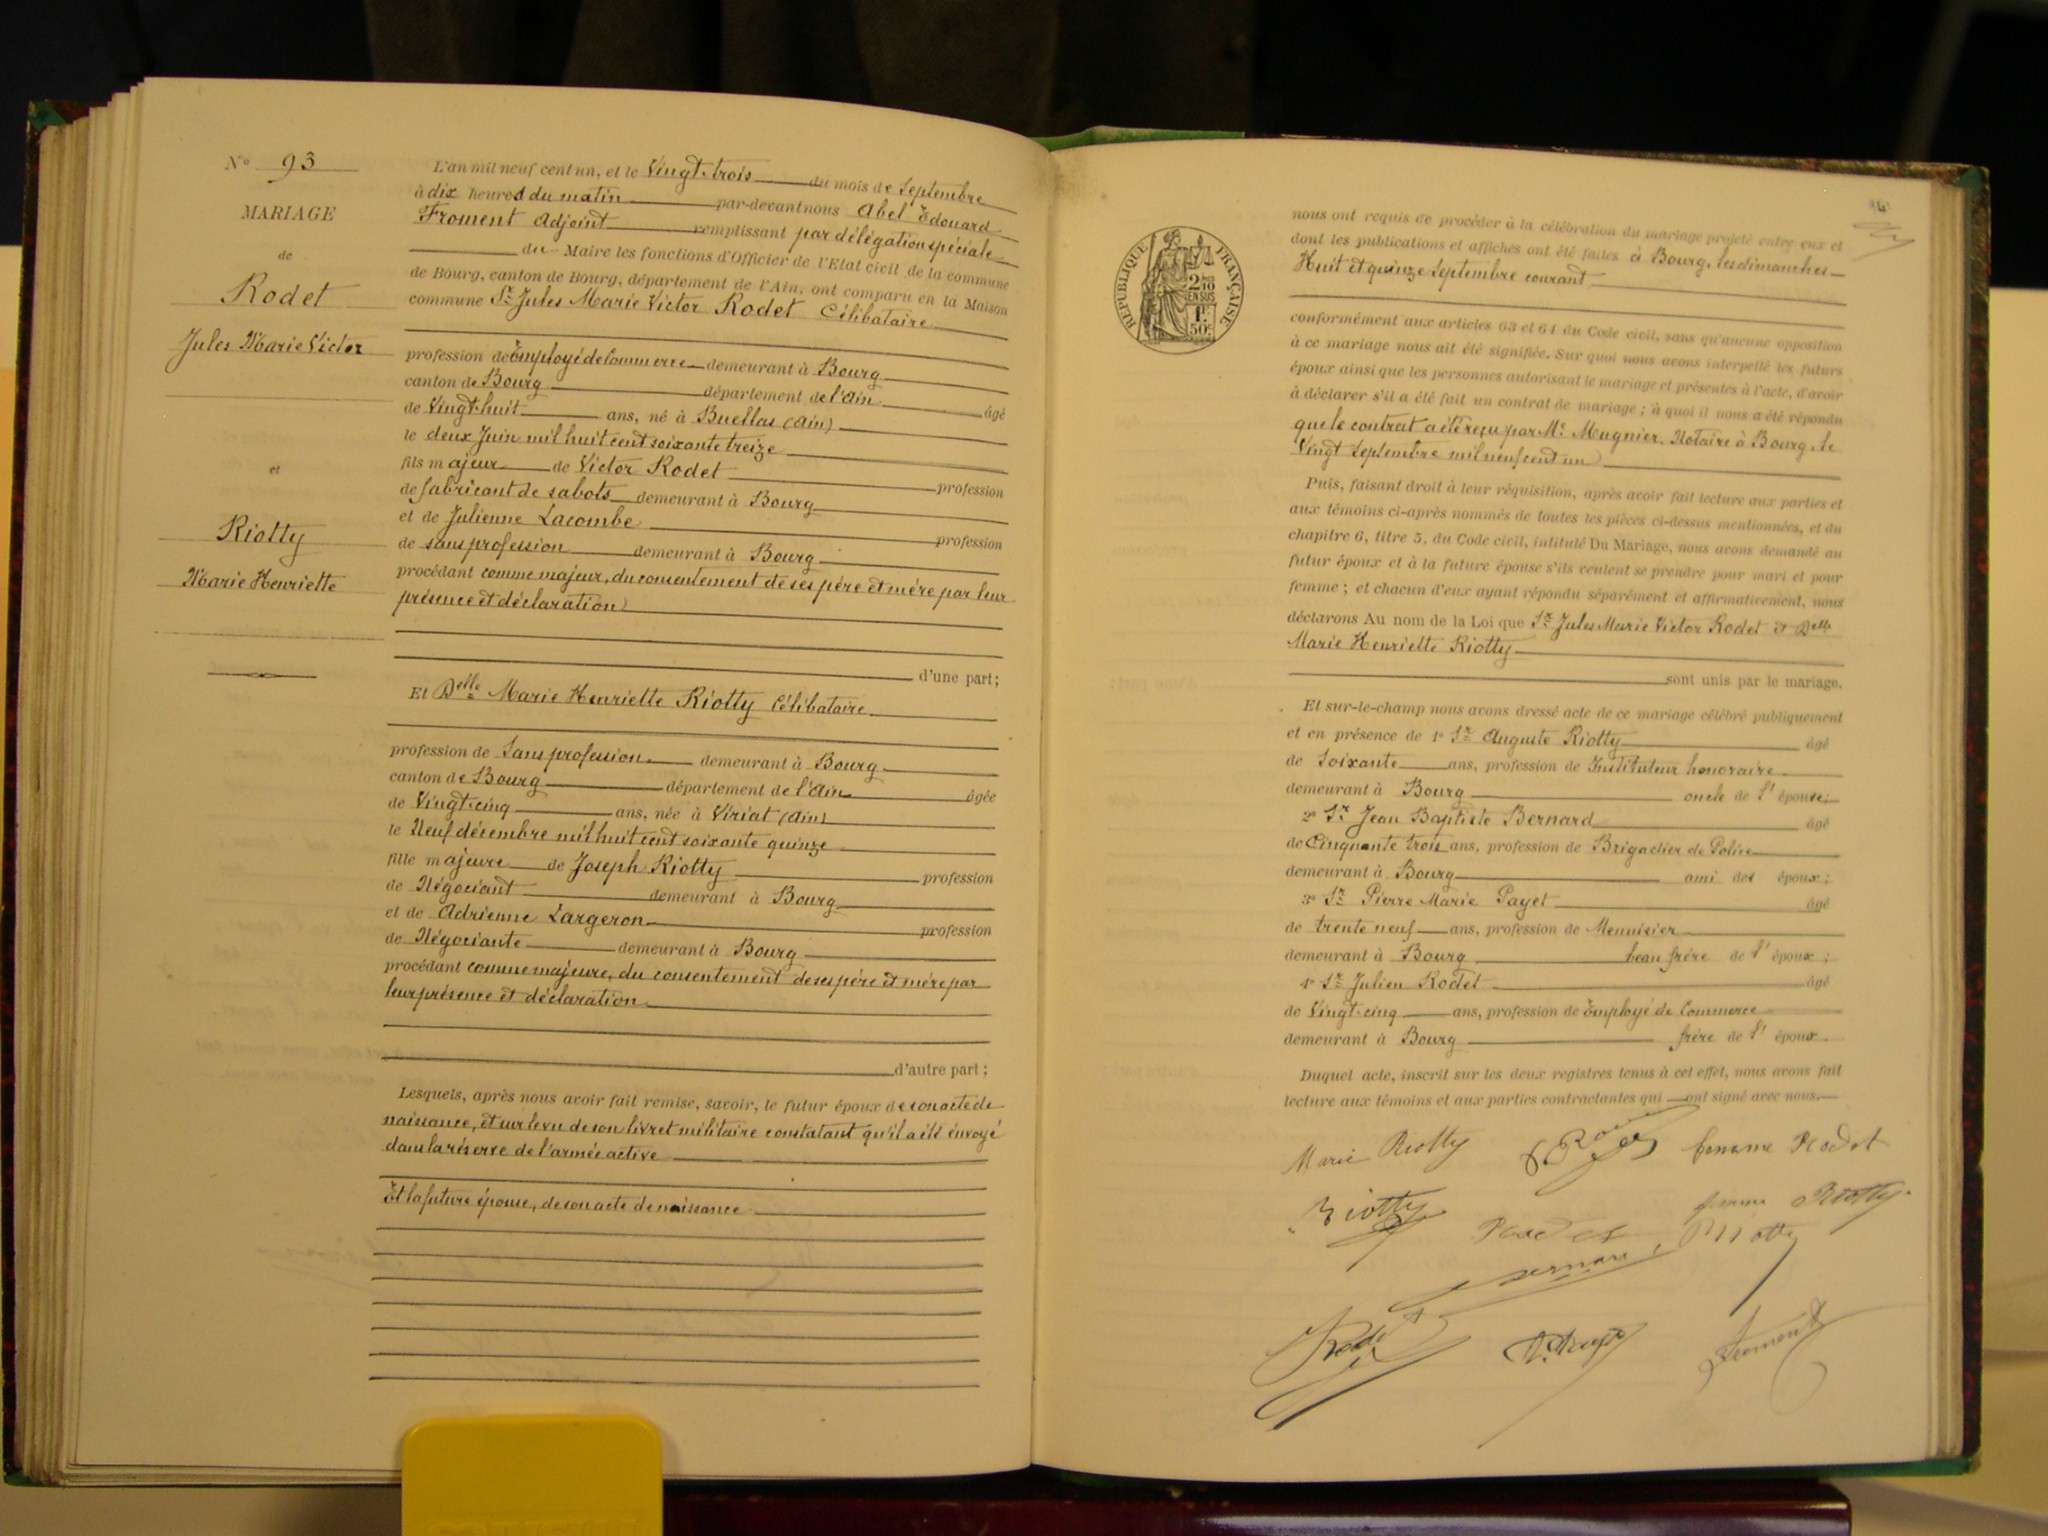 N° 93
MARIAGE
de
Rodet
Jules Marie Victor
et
Riotty
Marie Henriette
L'an mil neuf cent un, et le Vingt-trois du mois de Septembre
à dix heures du matin par-devant nous Abel Edouard
Froment Adjoint remplissant par délégation spéciale
du Maire les fonctions d'Officier de l'Etat civil de la commune
de Bourg, canton de Bourg, département de l'Ain, ont comparu en la Maison
commune Sr Jules Marie Victor Rodet Célibataire
profession de Employé de Commerce demeurant à Bourg
canton de Bourg département de l'Ain âgé
de Vingt-huit ans, né à Buellas (Ain)
le deux Juin mil huit cent soixante treize
fils majeur de Victor Rodet profession
de fabricant de sabots demeurant à Bourg
et de Julienne Lacombe profession
de sans profession demeurant à Bourg
procédant comme majeur, du consentement de ses père et mère par leur
présence et déclaration
d'une part;
Et Delle Marie Henriette Riotty Célibataire
profession de Sans profession demeurant à Bourg
canton de Bourg département de l'Ain âgée
de Vingt-cinq ans, née à Viriat (Ain)
le Neuf décembre mil huit cent soixante quinze
fille majeure de Joseph Riotty profession
de Négociant demeurant à Bourg
et de Adrienne Largeron profession
de Négociante demeurant à Bourg
procédant comme majeure, du consentement de ses père et mère par
leur présence et déclaration
d'autre part;
Lesquels, après nous avoir fait remise, savoir, le futur époux de son acte de
naissance, et sur le vu de son livret militaire constatant qu'il a été envoyé
dans la réserve de l'armée active
Et la future épouse, de son acte de naissance
RÉPUBLIQUE FRANÇAISE
2/10
EN SUS
1f
50c
nous ont requis de procéder à la célébration du mariage projeté entre eux et
dont les publications et affiches ont été faites à Bourg, les dimanches
Huit et quinze Septembre courant
conformément aux articles 63 et 64 du Code civil, sans qu'aucune opposition
à ce mariage nous ait été signifiée. Sur quoi nous avons interpellé les futurs
époux ainsi que les personnes autorisant le mariage et présentes à l'acte, d'avoir
à déclarer s'il a été fait un contrat de mariage; à quoi il nous a été répondu
que le contrat a été reçu par Me Mugnier, Notaire à Bourg, le
Vingt Septembre mil neuf cent un
Puis, faisant droit à leur réquisition, après avoir fait lecture aux parties et
aux témoins ci-après nommés de toutes les pièces ci-dessus mentionnées, et du
chapitre 6, titre 5, du Code civil, intitulé Du Mariage, nous avons demandé au
futur époux et à la future épouse s'ils veulent se prendre pour mari et pour
femme; et chacun d'eux ayant répondu séparément et affirmativement, nous
déclarons Au nom de la Loi que Sr Jules Marie Victor Rodet et Delle
Marie Henriette Riotty
sont unis par le mariage.
Et sur-le-champ nous avons dressé acte de ce mariage célébré publiquement
et en présence de 1° Sr Auguste Riotty âgé
de Soixante ans, profession de Instituteur honoraire
demeurant à Bourg oncle de l'épouse;
2° Sr Jean Baptiste Bernard âgé
de Cinquante trois ans, profession de Brigadier de Police
demeurant à Bourg ami des époux;
3° Sr Pierre Marie Payet âgé
de trente neuf ans, profession de Menuisier
demeurant à Bourg beau frère de l'époux;
4° Sr Julien Rodet âgé
de Vingt-cinq ans, profession de Employé de Commerce
demeurant à Bourg frère de l'époux.
Duquel acte, inscrit sur les deux registres tenus à cet effet, nous avons fait
lecture aux témoins et aux parties contractantes qui ont signé avec nous.
Marie Riotty femme Rodet
Riotty Rodet femme Riotty
Bernard Riotty
Rodet Froment